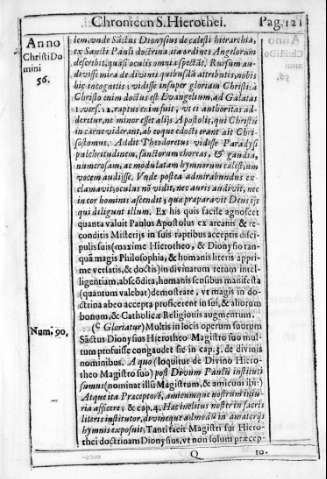 Chronicon S. Hierothei. Pag. 121
Anno
Christi Do
mini
56.
iem, vnde Sāctus Dionysius de cælesti hierarchia,
ex Sancti Pauli doctrina, ita ordines Angelorum
describit, quasi oculis omnia spectāt, Rursum au-
divisse mira de divinis quibusdā attributis, nobis
hic incognitis, vidisse insuper gloriam Christi: à
Christo enim doctus est Evangelium, ad Galatas
1. vers. 12. raptus in ipsius, vt ei authoritas ad-
deretur, ne minor esset alijs Apostolis, qui Christū
in carne viderant, ab eoque edocti erant ait Chri-
sostomus. Addit Theodoretus vidisse Paradysi
pulchritudinem, sanctorum choreas, & gaudia,
numerosam, ac modulatam hymnorum cælestium
vocem audisse. Vnde postea admirabundus ex-
clamavit, oculus nō vidit, nec auris audivit, nec
in cor hominis ascendit, qua præparavit Deus ijs
qui diligunt illum. Ex his quis facile agnoscet
quanta valuit Paulus Apostolus ex arcanis & re-
conditis Misterijs in suis raptibus acceptis disci-
pulis suis (maxime Hierotheo, & Dionysio tan-
quā magis Philosophia, & humanis literis appri-
me versatis, & doctis) in divinarum rerum intelli-
gentiam, abscōdita, humanis sensibus manifesta
(quantum valebat) demostrare, vt magis in do-
ctrina abeo accepta proficerent in sui, & aliorum
bonum, & Catholicæ Religionis augmentum.
Num. 90.
(C Gloriatur) Multis in locis operum suorum
Sāctus Dionysius Hierotheo Magistro suo mul-
tum profuisse congaudet sic in cap. 3. de divinis
nominibus. A quo (loquitur de Divino Hiero-
theo Magistro suo) post Divum Paulū instituti
sumus (nominat illū Magistrum, & amicum ibi:)
Atque ita Præceptorē, amicumque nostrum iniu-
ria afficere, & cap. 4. Hac melius noster in sacris
literis institutor, divineque admodū in amatorijs
hymnis exposuit. Tanti facit Magistri sui Hiero-
thei doctrinam Dionysius, vt non solum præcep-
Q
10.